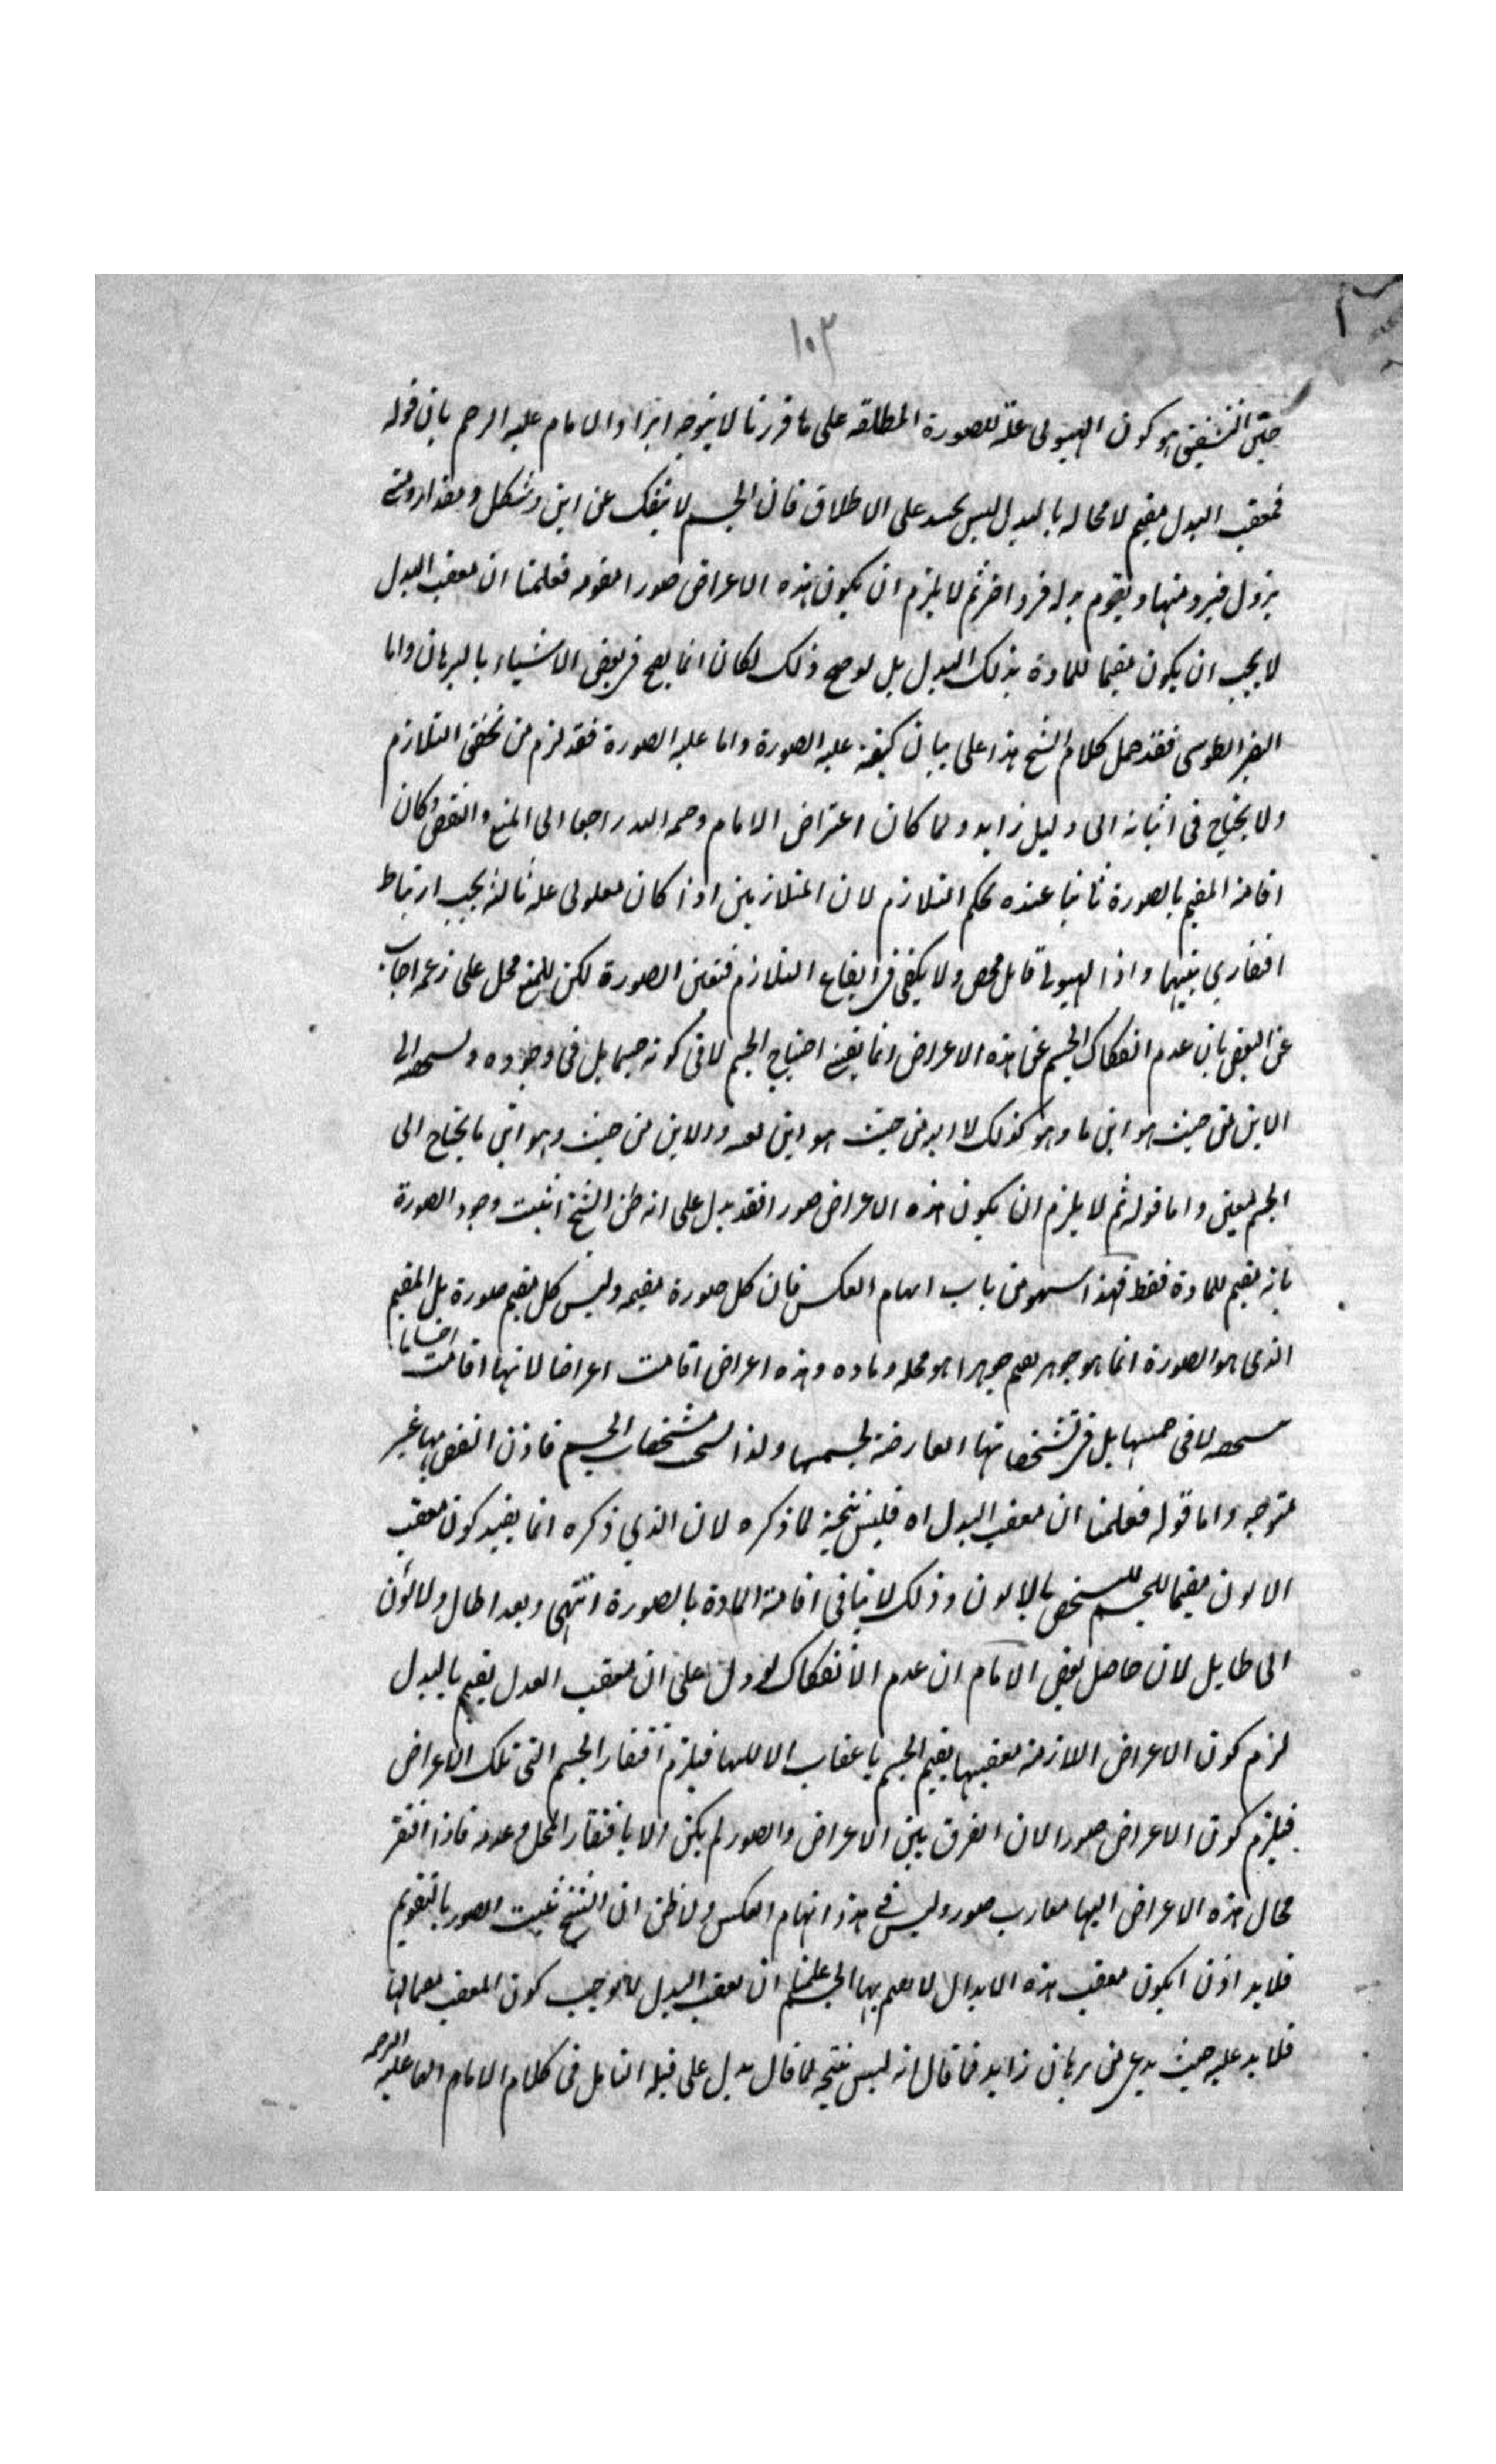 ١٠٣
هو كون الهيولى علة للصورة المطلقة على ما قررنا لا يتوجه ايراد الامام عليه الرحم بان قوله
فمعقب البدل مقيم لا محالة بالبدل ليس بجيد على الاطلاق فان الجسم لا ينفك عن اين وشكل ومقدار ومتى
يزول فرد منها ويقوم بدله فرد اخر ثم لا يلزم ان يكون هذه الاعراض صورا مقومه فعلمنا ان معقب البدل
لا يجب ان يكون مقيما للمادة بذلك البدل بل لو صح ذلك لكان انما يصح في بعض الاشياء بالبرهان واما
الطوسى فقد حمل كلام الشيخ هذا على بيان كيفية عليه الصورة واما عليه الصورة فقد لزم من تحقق التلازم
ولا يحتاج فى اثباته الى دليل زايد ولما كان اعتراض الامام رحمه الله راجعا الى المنع والنقض وكان
اقامة المقيم بالصورة ثانيا عنده بحكم التلازم لان المتلازمين اذا كان معلولى علة ثالثة يجب ارتباط
افتقاري بينهما واذا الهيولى قابل محض ولا يكفى فى ايقاع التلازم فتعين الصورة لكن للمنع محل على زعمه اجاب
عن النقض بان عدم انفكاك الجسم عن هذه الاعراض انما يقتضى احتياج الجسم لا فى كونه جسما بل فى وجوده الى
الاين من حيث هو اين ما وهو كذلك من حيث هو اين والاين من حيث هو اين ما يحتاج الى
الجسم المعين واما قوله ثم لا يلزم ان يكون هذه الاعراض صورا فقد يدل على انه ظن الشيخ اثبت وجود الصورة
بانه مقيم للمادة فقط فهذا سهو من باب ايهام العكس فان كل صورة مقيمه وليس كل مقيم صورة بل المقيم
الذى هو الصورة انما هو جوهر جوهرا هو محله وماده وهذه اعراض اقامت اعراضا لانها اقامت اجساما
لا فى جسميتها بل فى تشخصاتها العارضة لجسميتها ولذا مشخصات الجسم فاذن النقض بها غير
متوجه واما قوله فعلمنا ان معقب البدل اه فليس نتيجة لما ذكره لان الذي ذكره انما يفيد كون معقب
الالون مقيما للجسم المتشخص بالالون وذلك لا ينافى اقامة المادة بالصورة انتهى وبعد اطال ولا
الى طايل لان حاصل نقض الامام ان عدم الانفكاك لو دل على ان معقب البدل يقيم بالبدل
لزم كون الاعراض اللازمة معقبها يقيم الجسم باعقاب فيلزم افتقار الجسم الى تلك الاعراض
فيلزم كون الاعراض صورا لان الفرق بين الاعراض والصور لم يكن الا بافتقار المحل وعدمه فاذا افتقر
محال هذه الاعراض اليها صور وليس فى هذا ايهام العكس ولا ظن ان الشيخ يثبت الصور بالتقويم
فلا بد اذن معقب هذه الابدال لا بها الجسم علمنا ان معقب البدل لا يوجب كون المعقب
فلا بد عليه حيث يدعى من برهان زايد فما قال انه ليس نتيجه لما قال يدل على قلة التامل فى كلام الامام عليه الرحمه